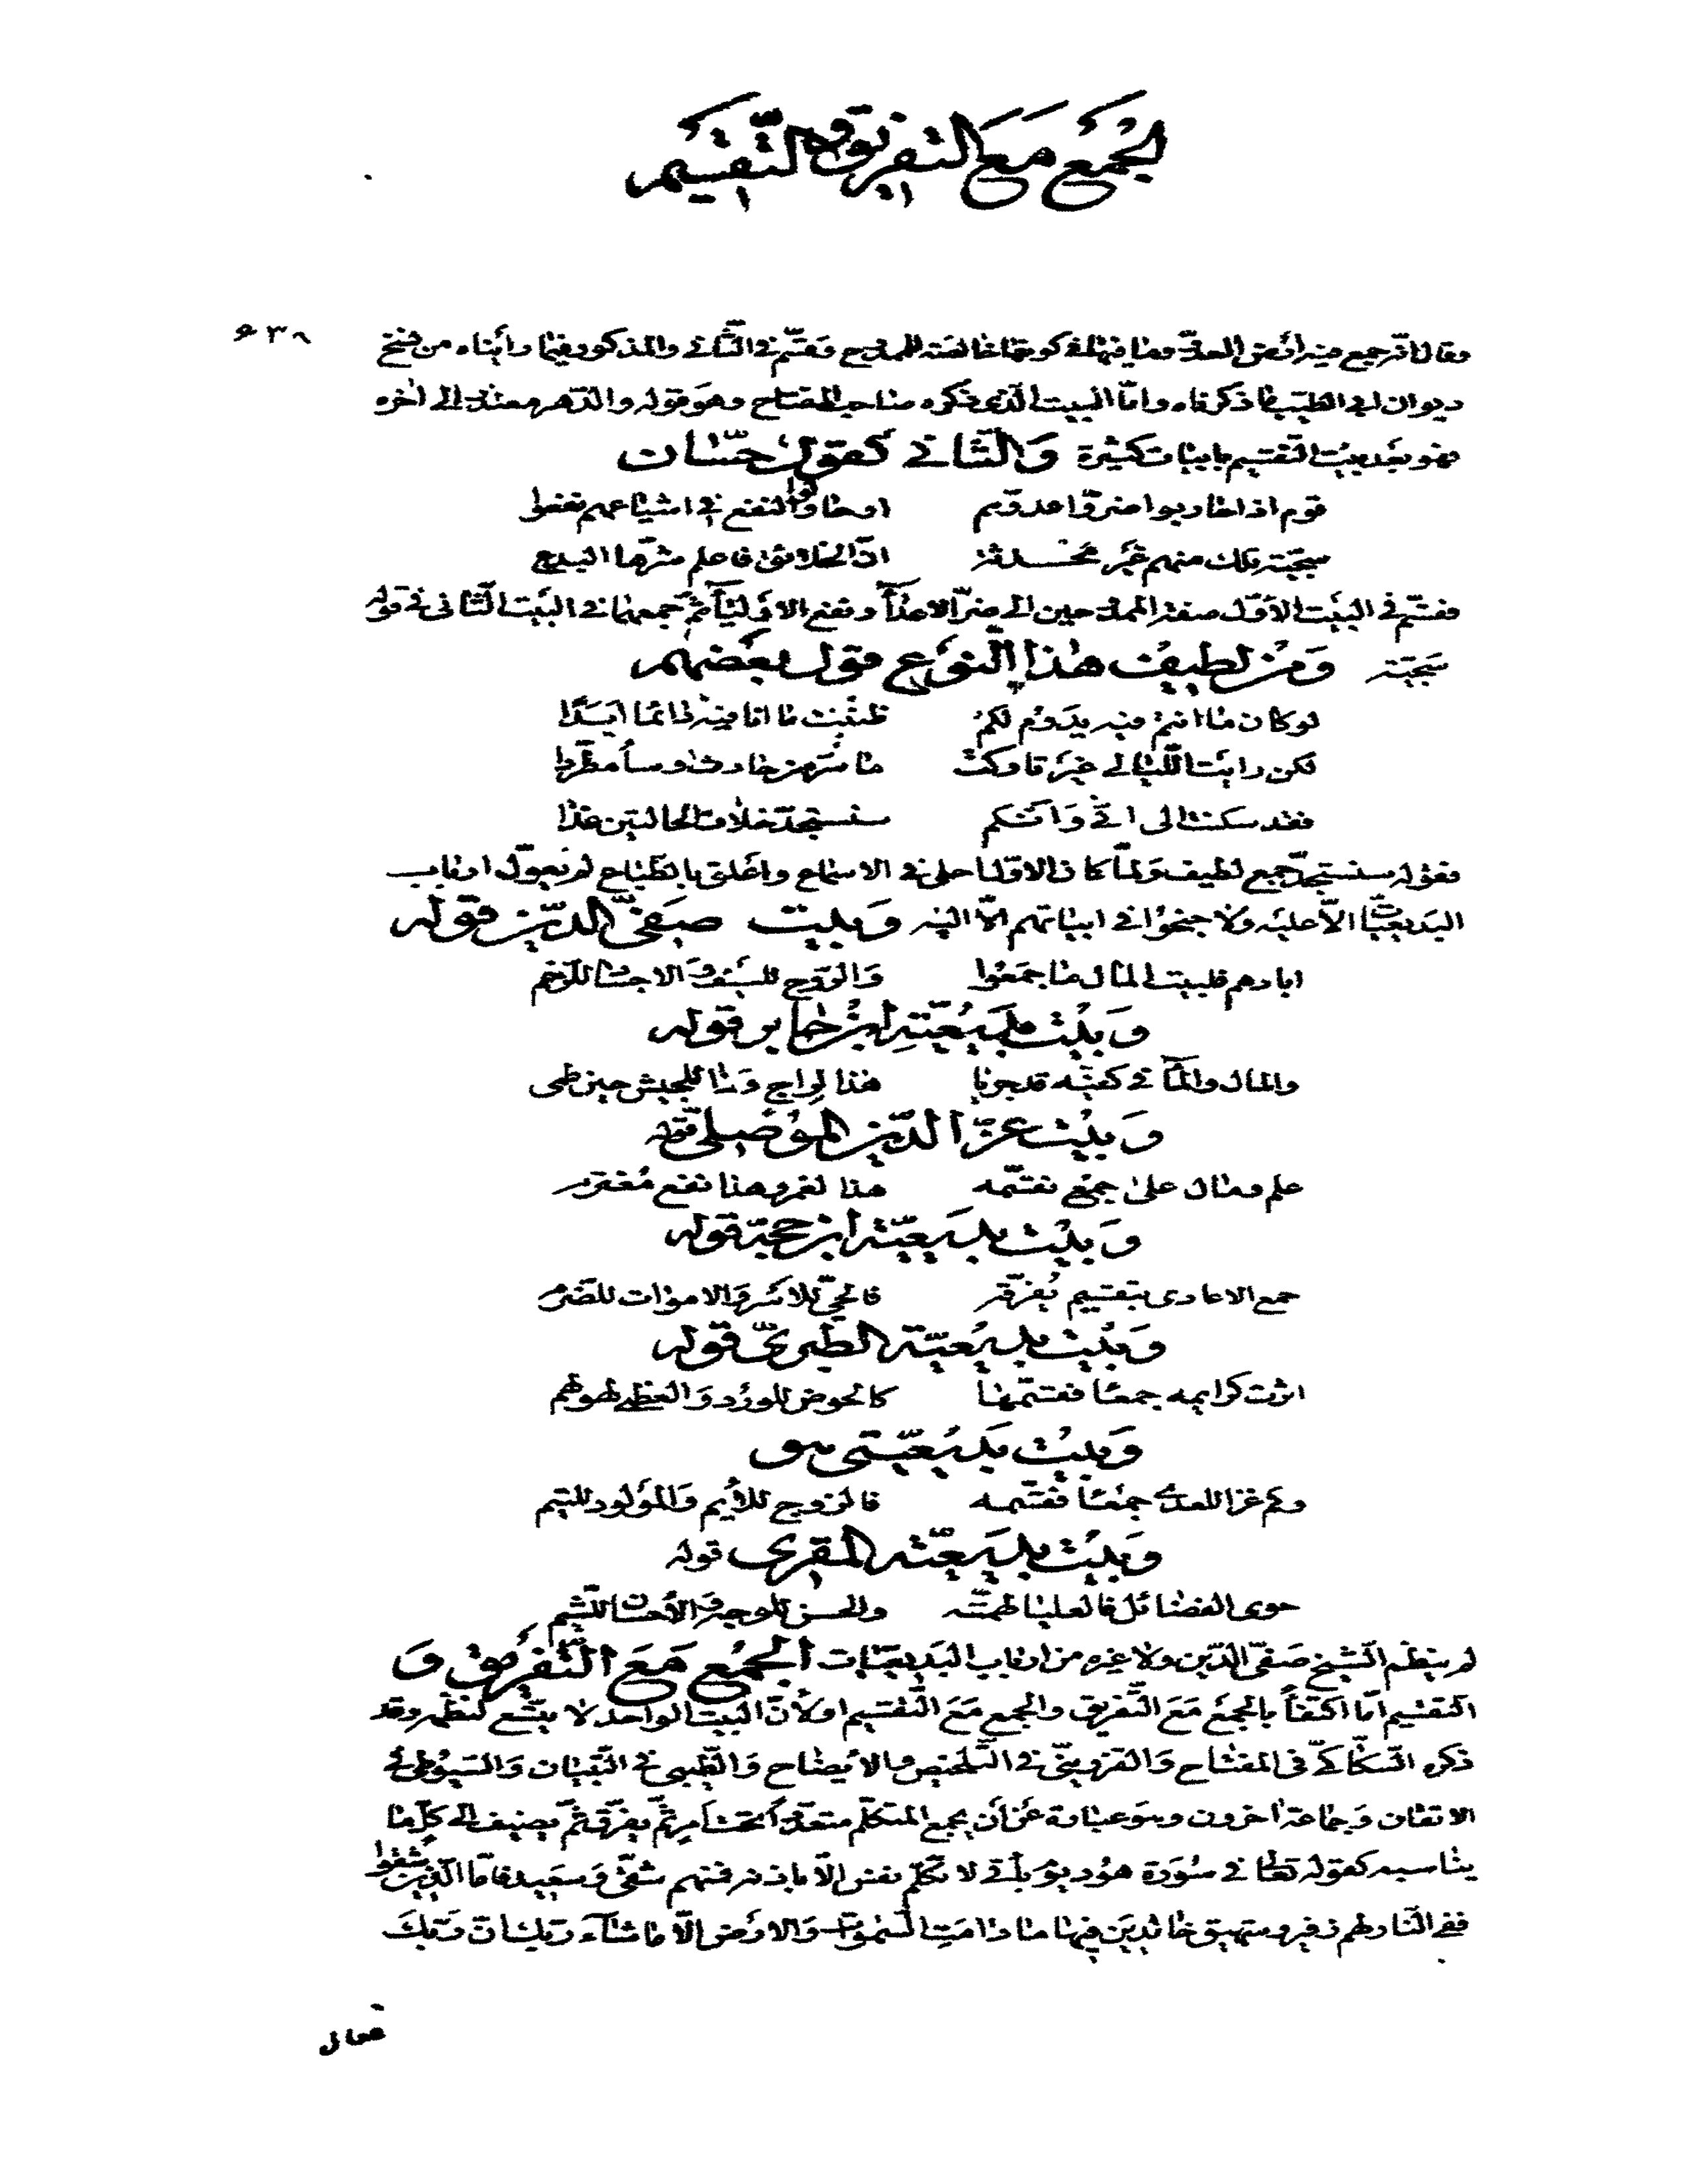 الجمع مع التفريق والتقسيم
٦٣٨
وقال انه جمع فيه ارض العدو وما فيها في كونها خالصة للممدوح وقسم في الثاني والمذكور فيما رأيناه من نسخ
ديوان ابي الطيب ما ذكرناه واما البيت الذي ذكره صاحب المفتاح وهو قوله والدهر معتذر الى اخره
فهو بعد بيت التقسيم بابيات كثيرة والثاني كقول حسان
قوم اذا حاربوا ضروا عدوهم او حاولوا النفع في اشياعهم نفعوا
سجية تلك منهم غير محدثة ان الخلائق فاعلم شرها البدع
فقسم في البيت الاول صفة الممدوحين الى ضر الاعدآ ونفع الاوليآ ثم جمعها في البيت الثاني في قوله
سجية ومن لطيف هذا النوع قول بعضهم
لو كان ما انتم فيه يدوم لكم ظننت ما انا فيه دائما ابدا
لكن رايت الليالي غير تاركة ما سر من حادث او ساء مطردا
فقد سكنت الى اني وانكم سنستجد خلاف الحالتين غدا
فقوله سنستجد جمع لطيف ولما كان الاول احلى في الاسماع واعلق بالطباع لم يعول ارباب
البديعيات الا عليه ولا جنحوا في ابياتهم الا اليه وبيت صفي الدين قوله
ابادهم فلبيت المال ما جمعوا والروح للسيف والاجساد للرخم
وبيت بديعية ابن جابر قوله
والمال والمآ في كفيه قد جريا هذا لراج وذا للجيش حين ظمي
وبيت عز الدين الموصلي قوله
علم ومال على جمع تقسمه هذا لغمر وهذا نفع مغترم
وبيت بديعية ابن حجة قوله
جمع الاعادي بتقسيم يفرقه فالحي للاسر والاموات للضرم
وبيت بديعية الطبري قوله
اثرت كرايمه جمعا فقسمها كالحوض للورد والعظمى لهولهم
وبيت بديعيتي هو
وكم غزا للعدى جمعا فقسمه فالزوج للأيم والمولود لليتم
وبيت بديعية المقري قوله
حوى الفضائل فالعليا لهمته والحسن للوجه والأحسان للشيم
لم ينظم الشيخ صفي الدين ولا غيره من ارباب البديعيات الجمع مع التفريق و
التقسيم اما اكتفآ بالجمع مع التفريق والجمع مع التقسيم او لأن البيت الواحد لا يتسع لنظمه وقد
ذكره السكاكي في المفتاح والقزويني في التلخيص والايضاح والطيبي في التبيان والسيوطي في
الاتقان وجماعة اخرون وهو عبارة عن أن يجمع المتكلم متعددا تحت امر ثم يفرق ثم يضيف الى كل ما
يناسبه كقوله تعالى في سورة هود يوم يأتي لا تكلم نفس الا باذنه فمنهم شقي وسعيد فاما الذين شقوا
ففي النار لهم زفير وشهيق خالدين فيها ما دامت السموات والارض الا ما شآء ربك ان ربك
فعال